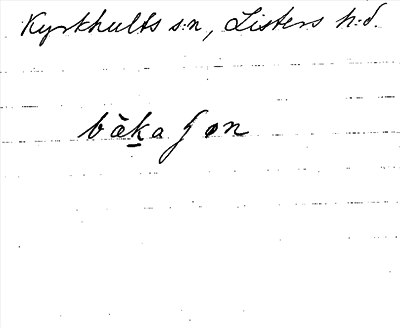 Kyrkhults s:n, Listers h:d.
bàḵa ʃ ɷn